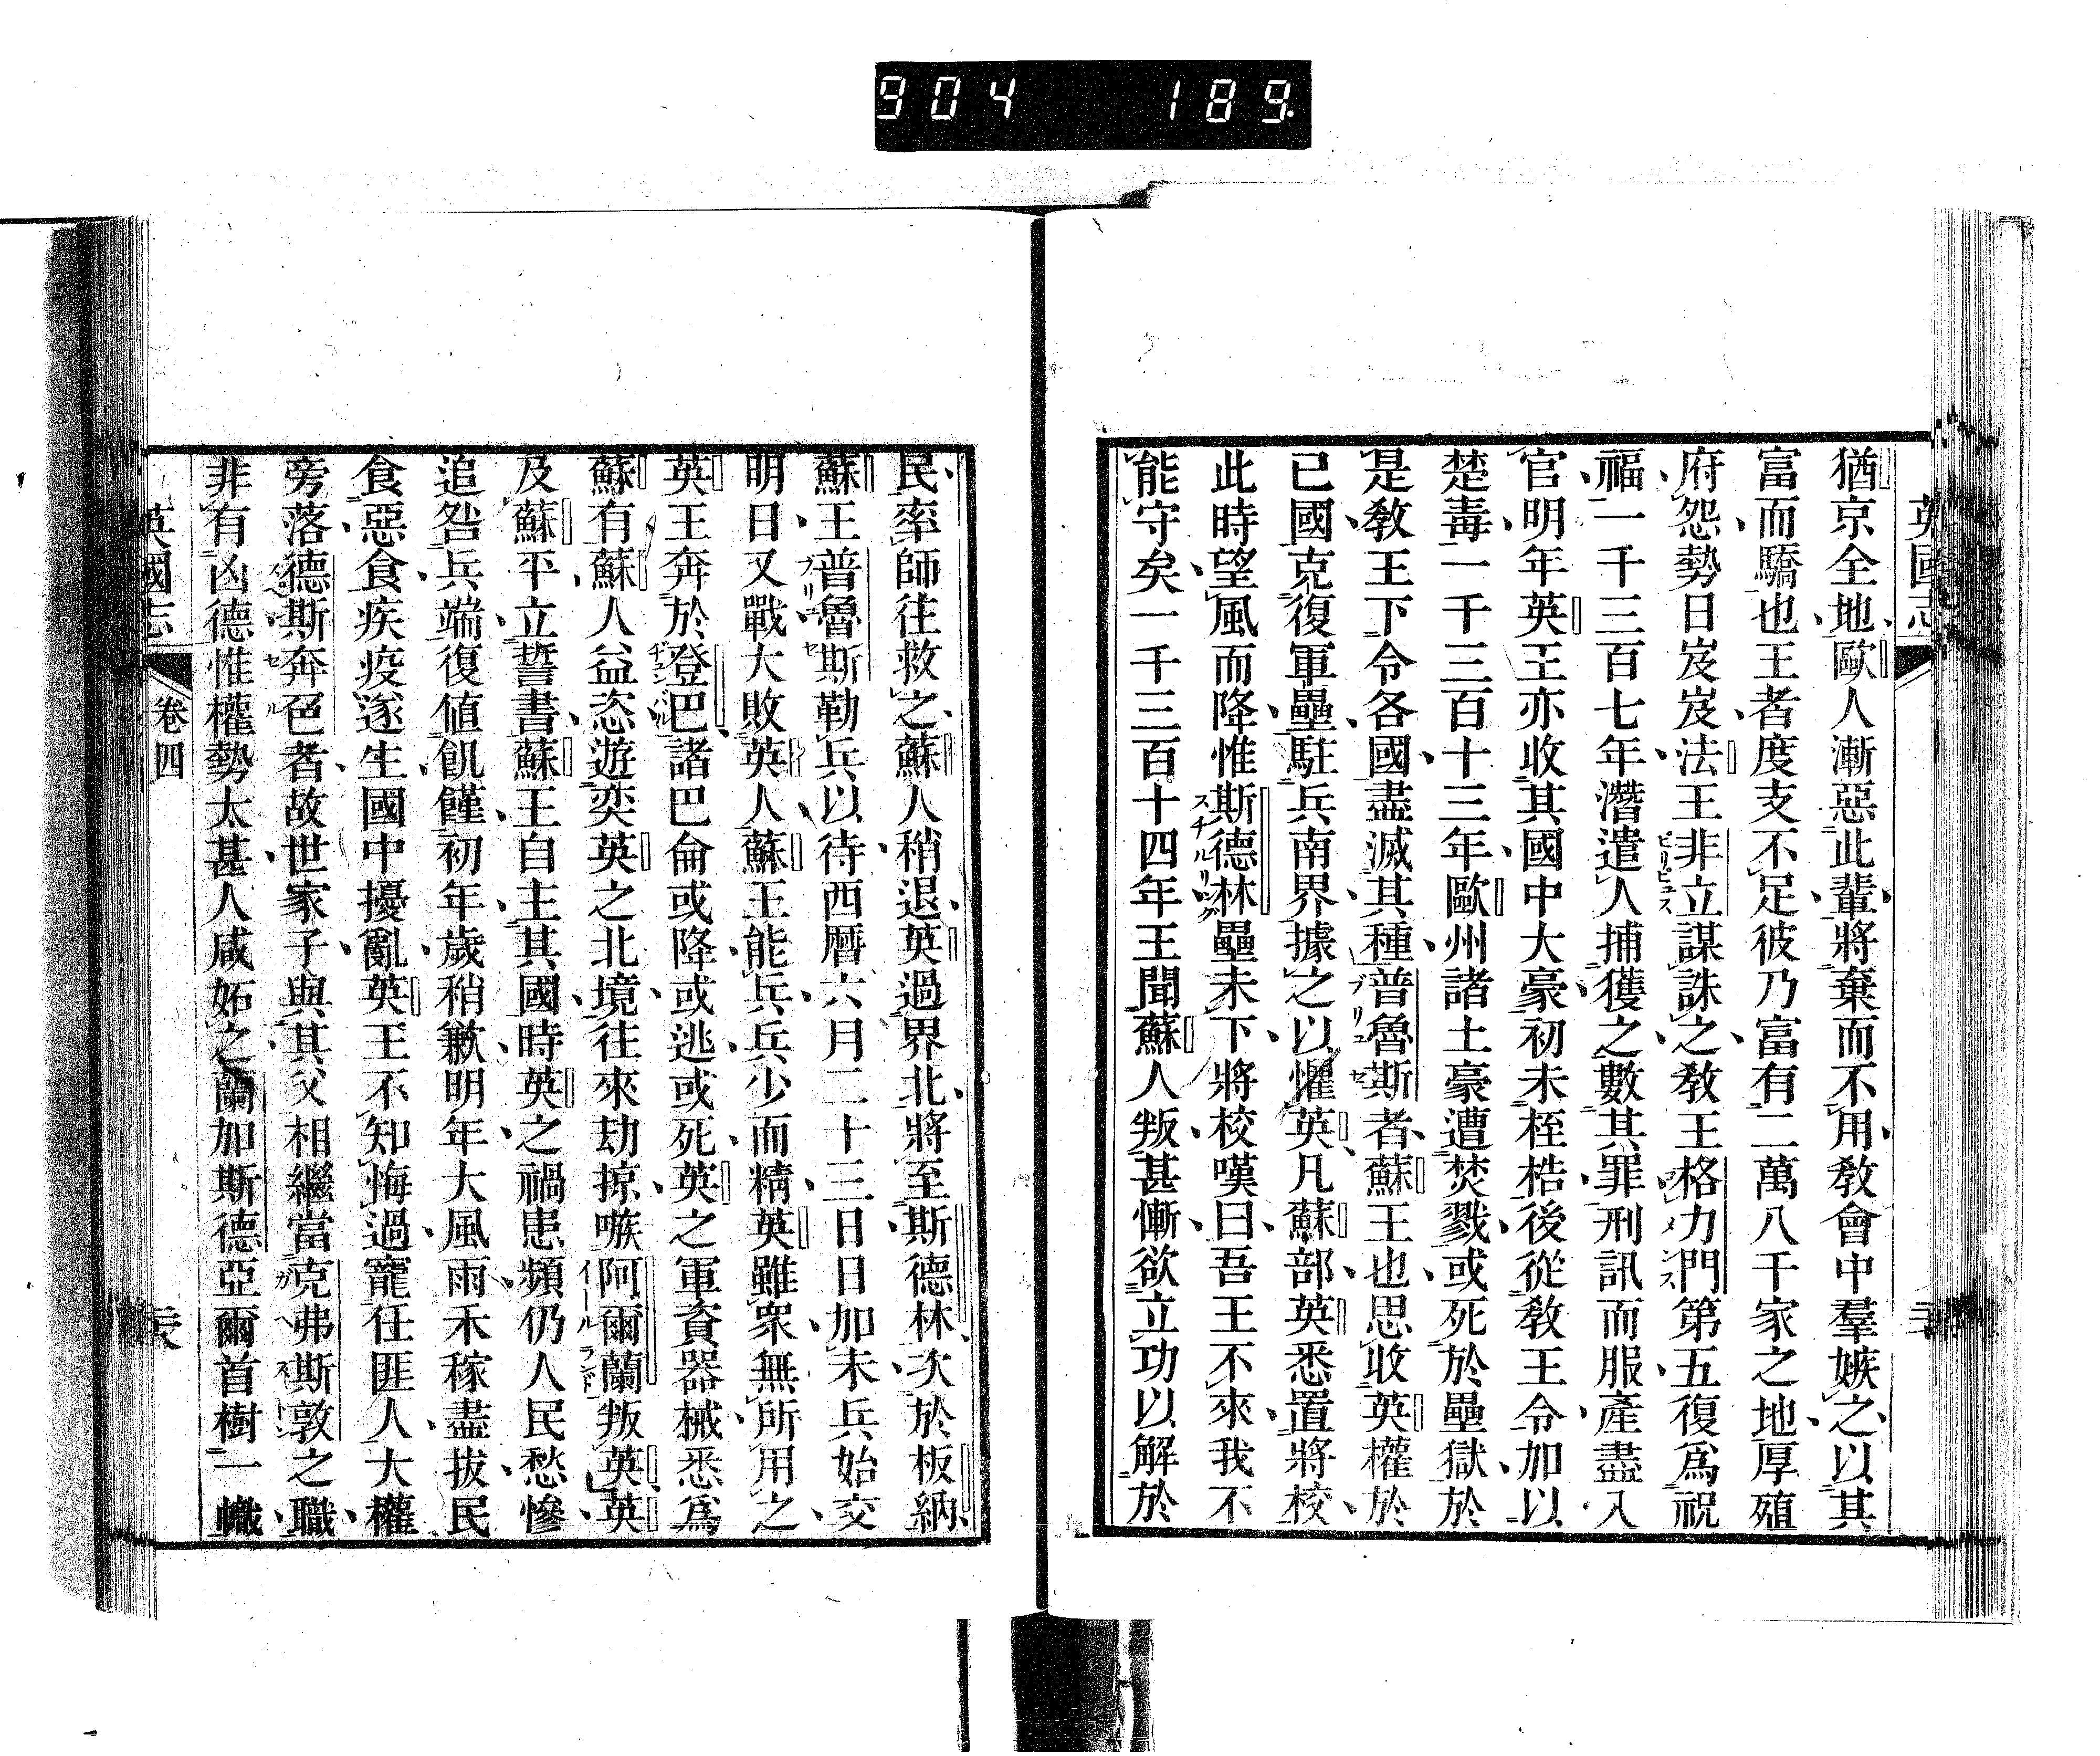 904 189.
英國志
猶京全地歐人漸惡此輩將棄而不用敎會中羣嫉之以其
富而驕也王者度支不足彼乃富有二萬八千家之地厚殖
府怨勢日岌岌法王非立謀誅之敎王格力門第五復爲祝
福一千三百七年潛遣人捕獲之數其罪刑訊而服產盡入
官明年英王亦收其國中大豪初未桎梏後從敎王令加以
楚毒一千三百十三年歐州諸土豪遭焚戮或死於壘獄於
是敎王下令各國盡滅其種普魯斯者蘇王也思收英權於
已國克復軍壘駐兵南界據之以懼英凡蘇部英悉置將校
此時望風而降惟斯德林壘未下將校嘆曰吾王不來我不
能守矣一千三百十四年王聞蘇人叛甚慚欲立功以解於
民率師往救之蘇人稍退英過界北將至斯德林次於板納
蘇王普魯斯勒兵以待西曆六月二十三日日加未兵始交
明日又戰大敗英人蘇王能兵兵少而精英雖衆無所用之
英王奔於登巴諸巴侖或降或逃或死英之軍資器械悉爲
蘇有蘇人益恣遊奕英之北境往來劫掠嗾阿爾蘭叛英英
及蘇平立誓書蘇王自主其國時英之禍患頻仍人民愁慘
追咎兵端復値飢饉初年歲稍歉明年大風雨禾稼盡拔民
食惡食疾疫遂生國中擾亂英王不知悔過寵任匪人大權
旁落德斯奔色者故世家子與其父相繼當克弗斯敦之職
非有凶德惟權勢太甚人咸妬之蘭加斯德亞爾首樹一幟
英國志 卷四